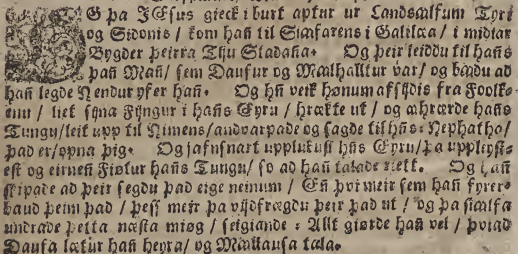 OG þa JEsus gieck i burt aptur ur Landsalfum Tyri
og Sidonis / kom hañ til Siafarens i Galilæa / i midiar
Bygder þeirra Tiju Stadaña. Og þeir leiddu til hañs
þañ Mañ / sem Daufur og Mælhalltur var / og bædu ad
hañ legde Hendur yfer hañ. Og hñ veik hønum afsijdis fra Foolk-
enu / liet sijna Fijngur i hañs Eyru / hrækte ut / og æhrærde hañs
Tungu / leit upp til Himens / andvarpade og sagde til hñs: Hephatha /
þad er / opna þig. Og jafnsnart upplukust hñs Eyru / þa upplejst-
est og eirneñ Fiøtur hañs Tungu / so ad hañ talade riett. Og hañ
skipade ad þeir segdu þad eige neinum / Eñ þvi meir sem hañ fyrer-
baud þeim þad / þess meir þa vijdfrægdu þeir þad ut / og þa sialfa
undrade þetta næsta miøg / seigiande: Allt giørde hañ vel / þviad
Daufa lætur hañ heyra / og Mællausa tala.